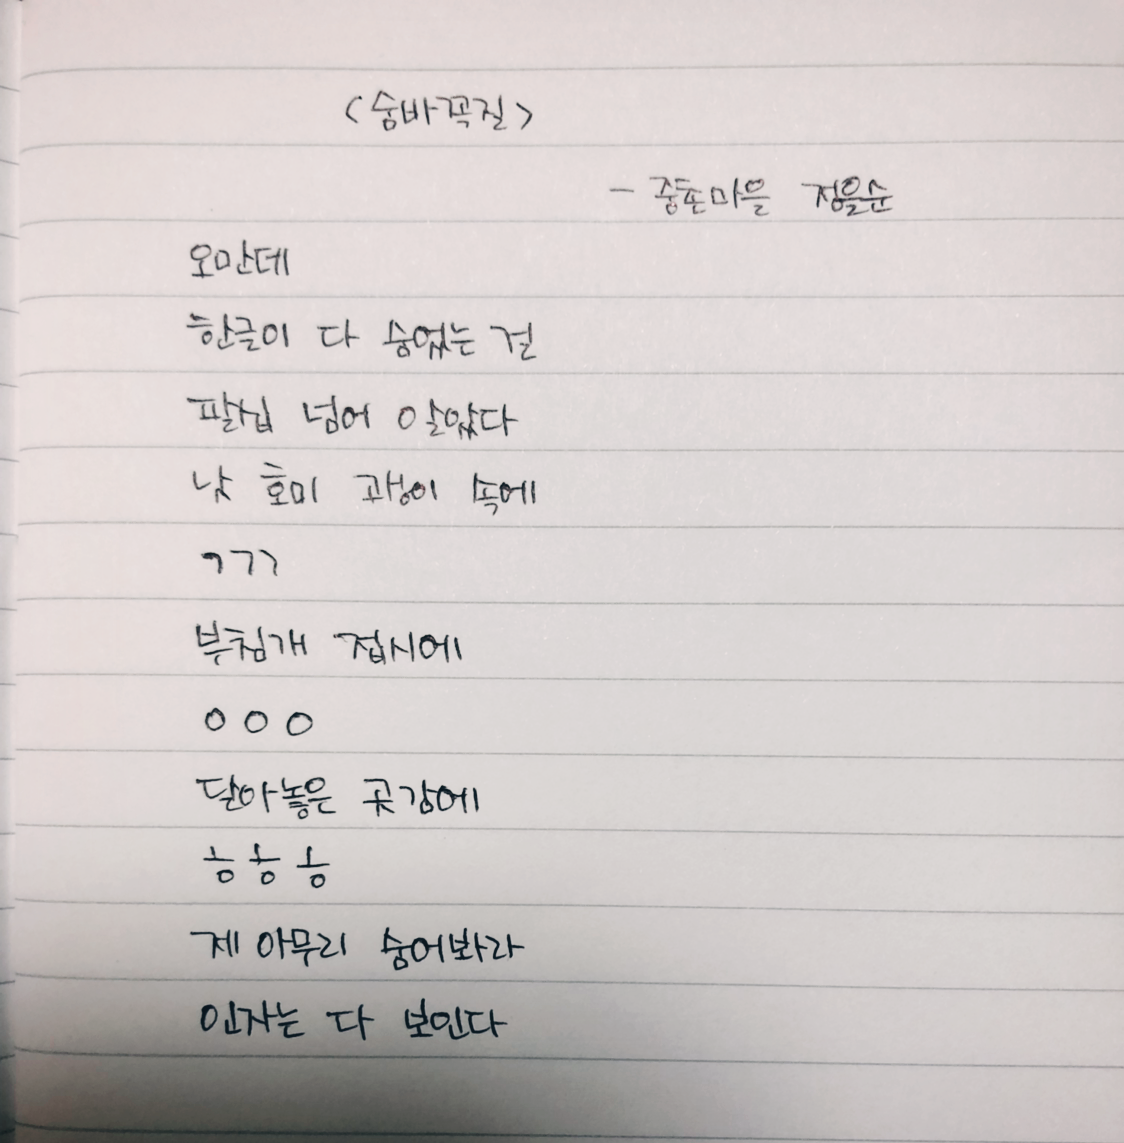 <숨바꼭질>
- 중촌마을 정을순
오만데
한글이 다 숨었는 걸
팔십 넘어 알았다
낫 호미 괭이 속에
ㄱㄱㄱ
부침개 접시에
ㅇㅇㅇ
달아놓은 곶감에
ㅎㅎㅎ
제 아무리 숨어봐라
인자는 다 보인다